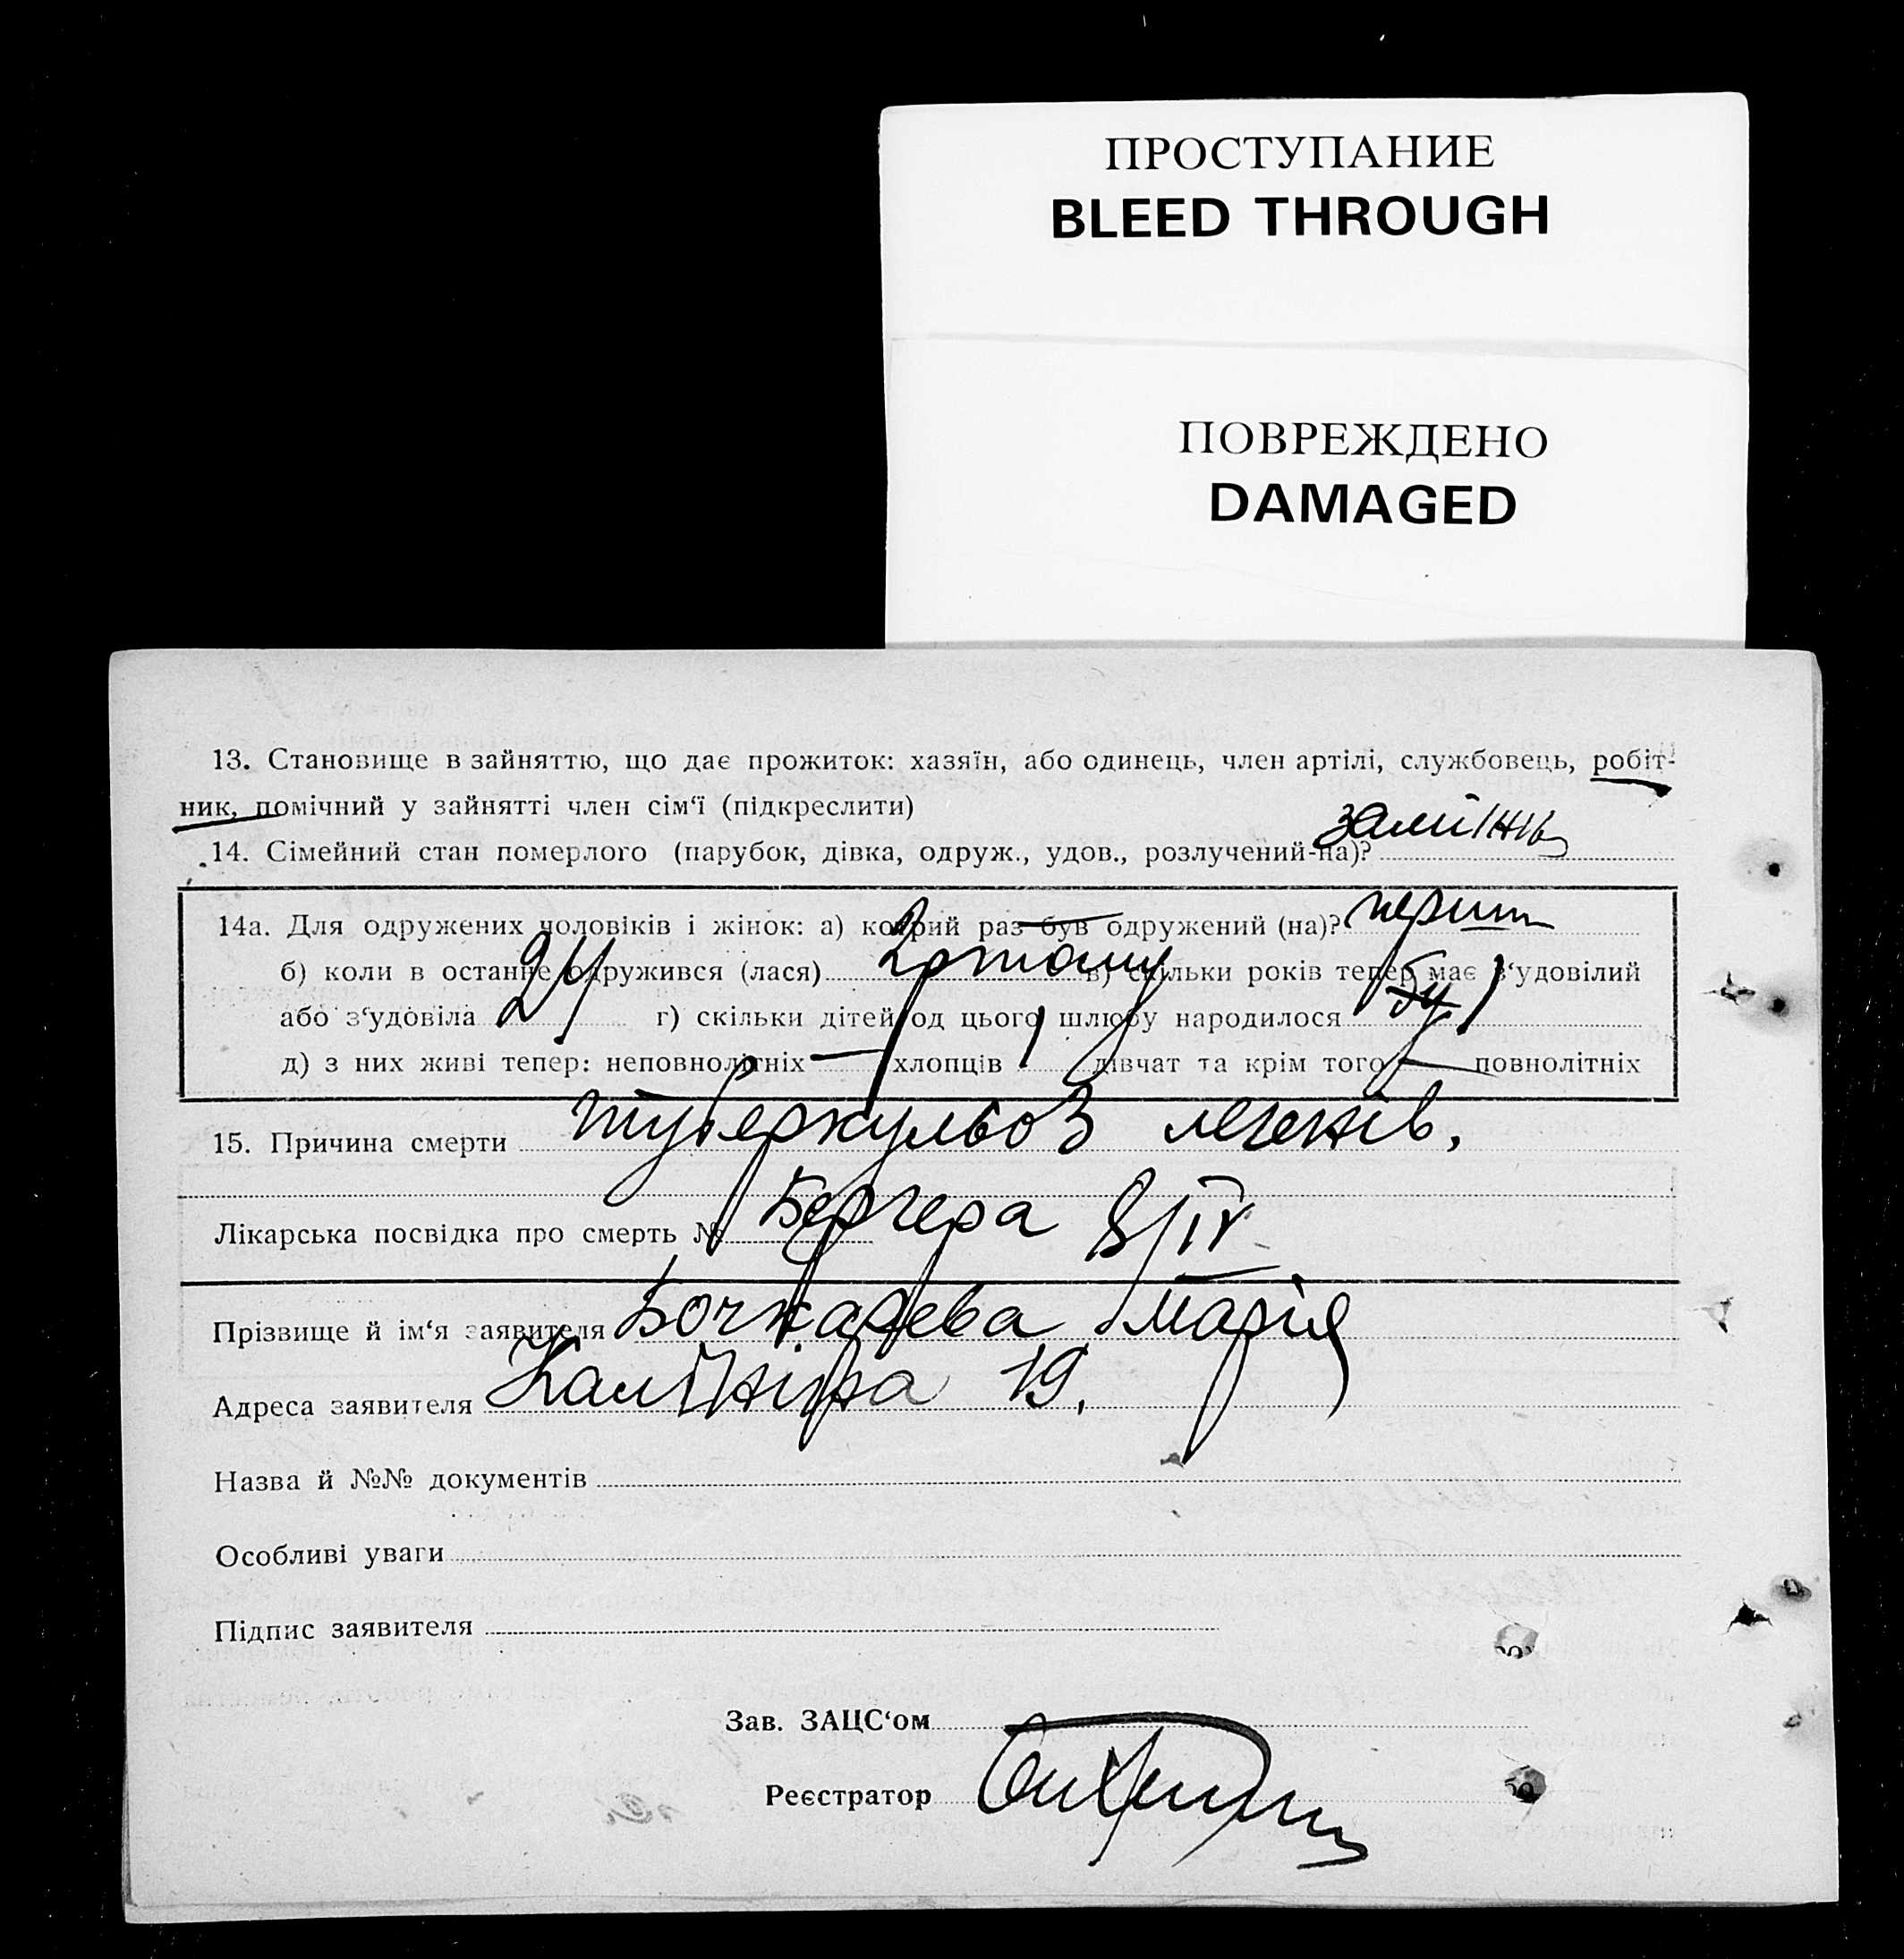 ПРОСТУПАНИЕ
BLEED THROUGH
ПОВРЕЖДЕНО
DAMAGED
13. Становище в зайняттю, що дає прожиток: хазяїн, або одинець, член артілі, службовець, робіт-
ник, помічний у зайнятті член сім‘ї (підкреслити)
14. Сімейний стан померлого (парубок, дівка, одруж., удов., розлучений-на)? заміжня
14а. Для одружених чоловіків і жінок: а) котрий раз був одружений (на)? перший
б) коли в останнє одружився (лася) 2 р тому в) скільки років тепер має з‘удовілий
або з‘удовіла 24 г) скільки дітей од цього шлюбу народилося 1
д) з них живі тепер: неповнолітніх — хлопців 1 дівчат та крім того — повнолітніх
15. Причина смерти туберкульоз легенів,
Лікарська посвідка про смерть № Бергера 8/IV
Прізвище й ім‘я заявителя Бочкарева Марія
Адреса заявителя 19,
Назва й №№ документів
Особливі уваги
Підпис заявителя
Зав. ЗАЦС‘ом
Реєстратор